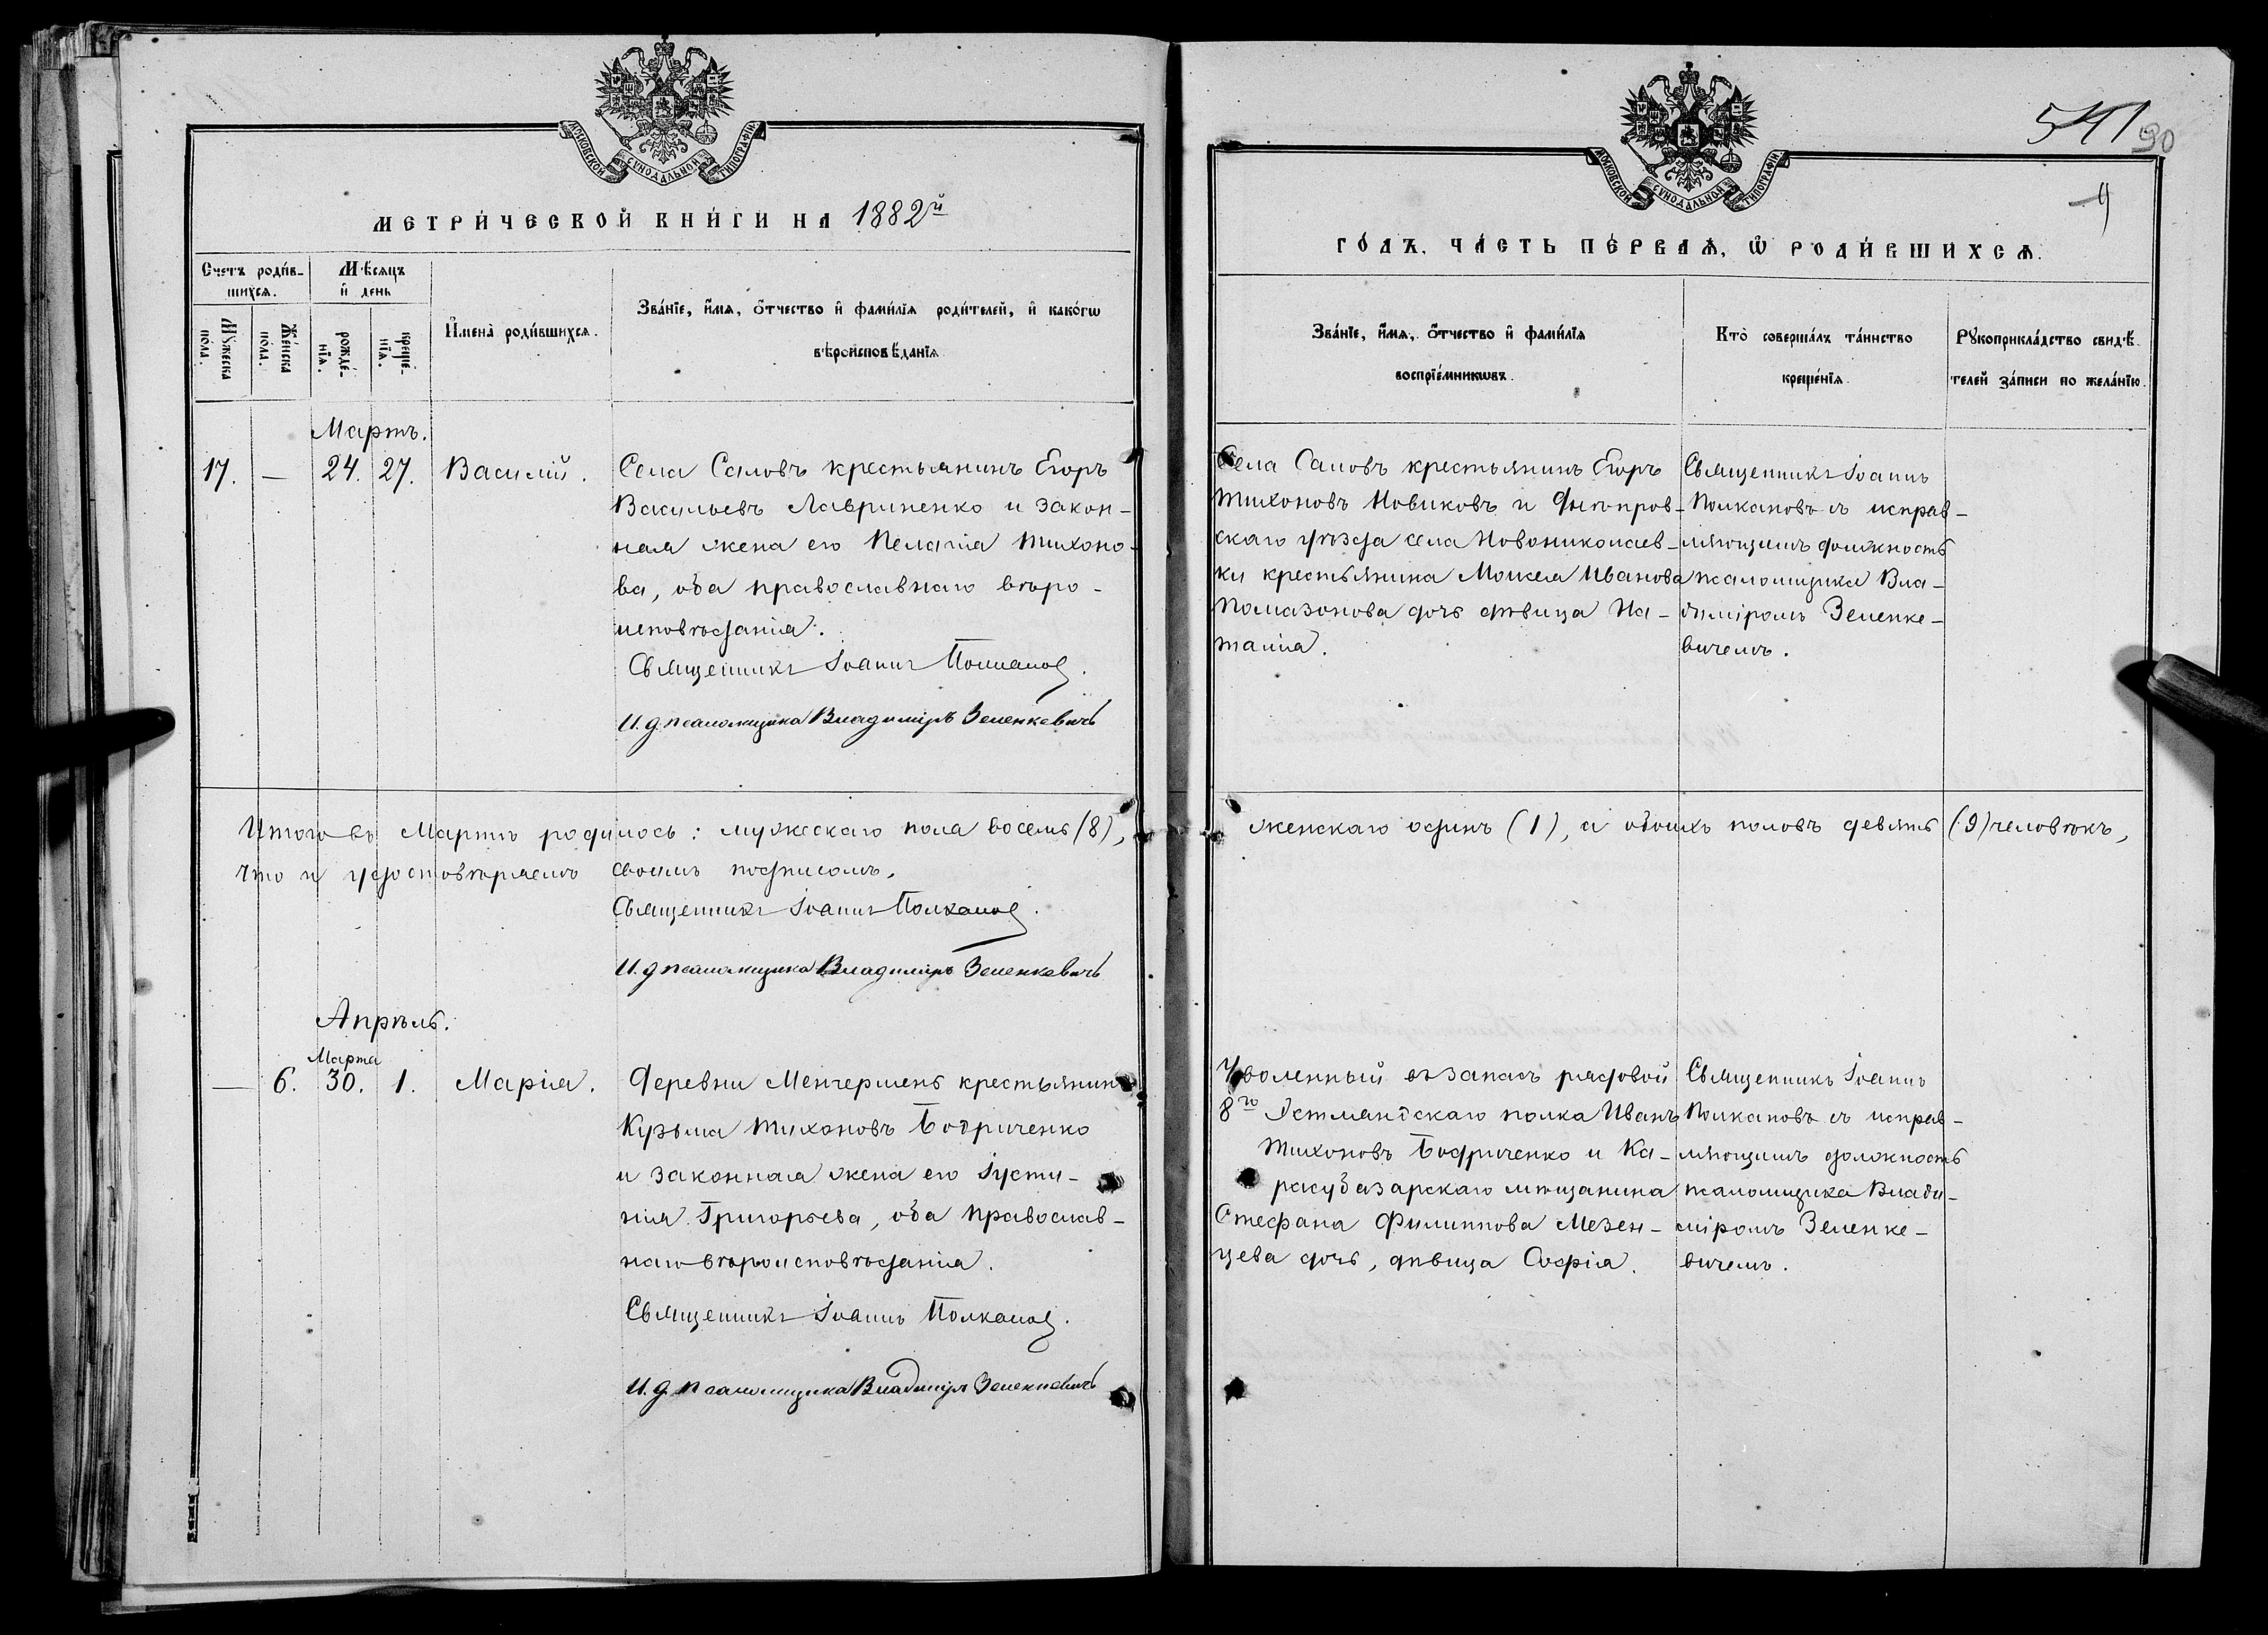 МОСКОВСКОЙ СѴНОДАЛЬНОЙ ТИПОГРАФІИ.
МЕТРИ́ЧЕСКОЙ КНИ́ГИ НА 1882й
Счетъ роди́в-
шихся.
Мѣсяцъ
и день
Мꙋжеска
по́ла.
Же́нска
по́ла.
рожде́-
нїя.
креще́-
нїя.
Имена̀ роди́вшихся.
Зва́нїе, и҆́мя, ѻ҆́тчество и҆ фами́лїя роди́телей, и҆ како́гѡ
вѣроисповѣ́данїя
Мартъ.
17. — 24. 27. Василій.
Села Саловъ крестьянинъ Егоръ
Васильевъ Лавриненко и закон-
ная жена его Пелагія Тихоно-
ва, оба православнаго вѣро-
исповѣданія.
Священникъ Іоаннъ Полканов.
И. д. псаломщика Владиміръ Зеленкевичъ
Итого въ Мартѣ родилось: мужескаго пола восемь (8),
что и удостовѣряемъ своимъ подписомъ.
Священникъ Іоаннъ Полканов.
И. д. псаломщика Владиміръ Зеленкевичъ
Апрѣль.
Марта
— 6. 30. 1. Марія.
Деревни Менгермень крестьянинъ
Кузьма Тихоновъ Бодриченко
и законная жена его Іусти-
нія Григорьева, оба православ-
наго вѣроисповѣданія.
Священникъ Іоаннъ Полканов.
И. д. псаломщика Владиміръ Зеленкевичъ
541
90
МОСКОВСКОЙ СѴНОДАЛЬНОЙ ТИПОГРАФІИ.
ГО́ДЪ, ЧА́СТЬ ПЕ́РВАѦ, Ѡ҆ РОДИ́ВШИХСѦ.
Зва́нїе, и҆́мя, ѻ҆́тчество и҆ фами́лїя
воспрїе́мникѡвъ.
Кто̀ соверша́лъ та́инство
креще́нїя.
Рꙋкоприкла́дство свидѣ́-
телей за́писи по жела́нїю.
Села Саловъ крестьянинъ Егоръ
Тихоновъ Новиковъ и Днѣпров-
скаго уѣзда села Новониколаев-
ки крестьянина Моисея Иванова
Помазонова дочь дѣвица На-
талія.
Священникъ Іоаннъ
Полкановъ съ исправ-
ляющимъ должность
псаломщика Вла-
диміромъ Зеленке-
вичемъ.
женскаго одинъ (1), а обоихъ половъ девять (9) человѣкъ,
Уволенный въ запасъ рядовой
8го Эстляндскаго полка Иванъ
Тихоновъ Бодриченко и Ка-
расубазарскаго мѣщанина
Стефана Филиппова Мезен-
цева дочь, дѣвица Софія.
Священникъ Іоаннъ
Полкановъ съ исправ-
ляющимъ должность
псаломщика Влади-
міромъ Зеленке-
вичемъ.